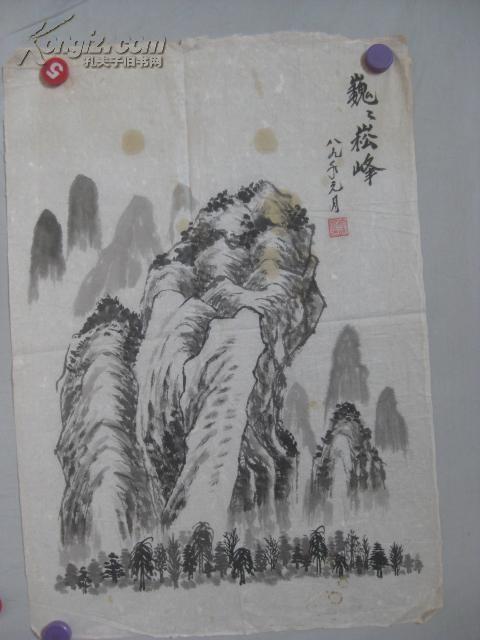 Kongfz.com
孔夫子旧书网
巍〻崧峰
八九年元月